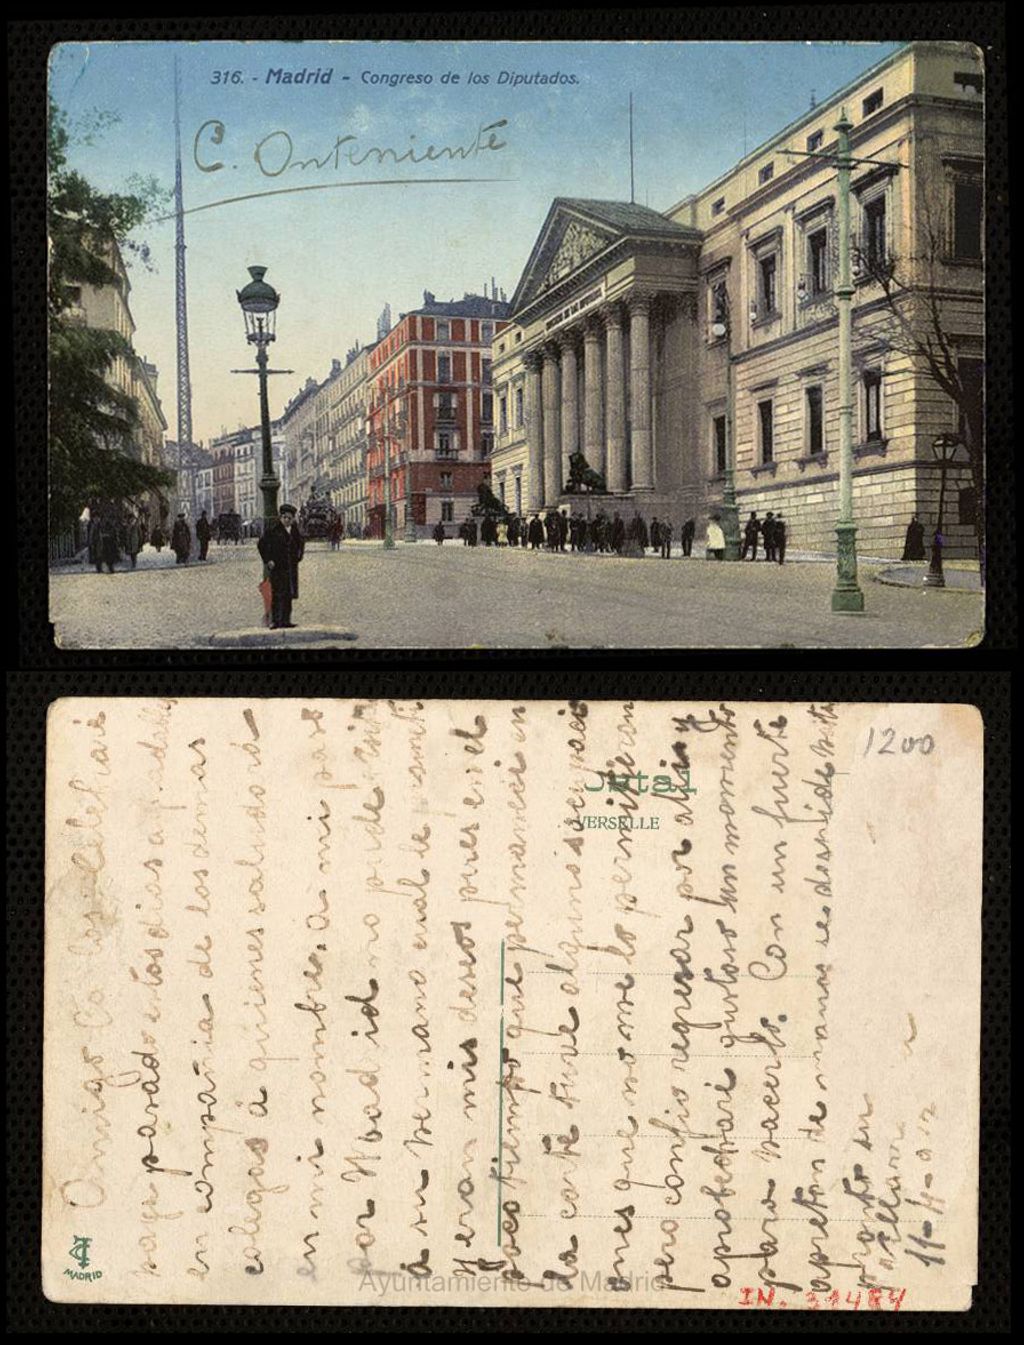 316. - Madrid - Congreso de los Diputados.
C. Onteniente
1200
Postal
VERSELLE
Amigo Co los Celebraré
haya pasado estos dias agradables
en compañia de los demas
colegas á quienes saludará
en mi nombre, á mi paso
por Madrid no pude
á su hermano cual le prometi
eran mis deseos pues en el
poco tiempo que permaneci en
la corte tuve algunas ocupaci
ones que no me lo permitieron
pero confio regresar por ali y
aprobecharé gustoso un momento
para hacerlo. Con un fuerte
apreton de manos se despide hasta
pronto su
11-4-912
MADRID
Ayuntamiento de Madrid
IN. 31484